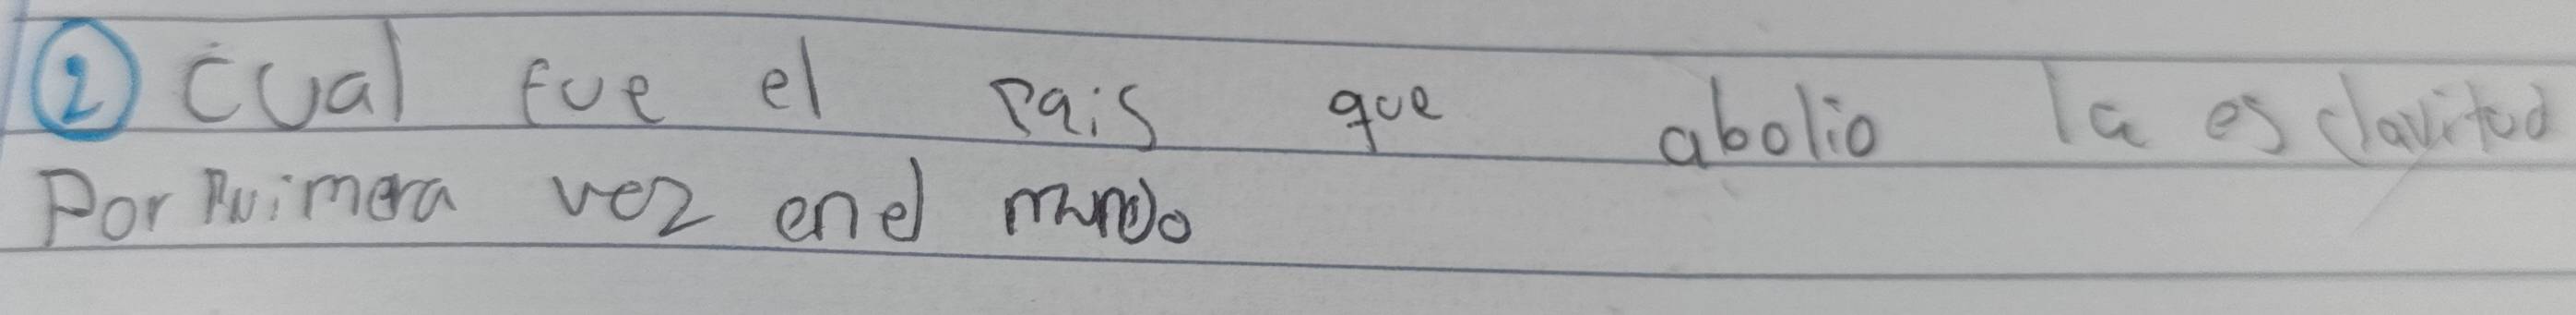 2 Cual fue el pais que abolio la esclavitud
Por Primera vez en el mundo